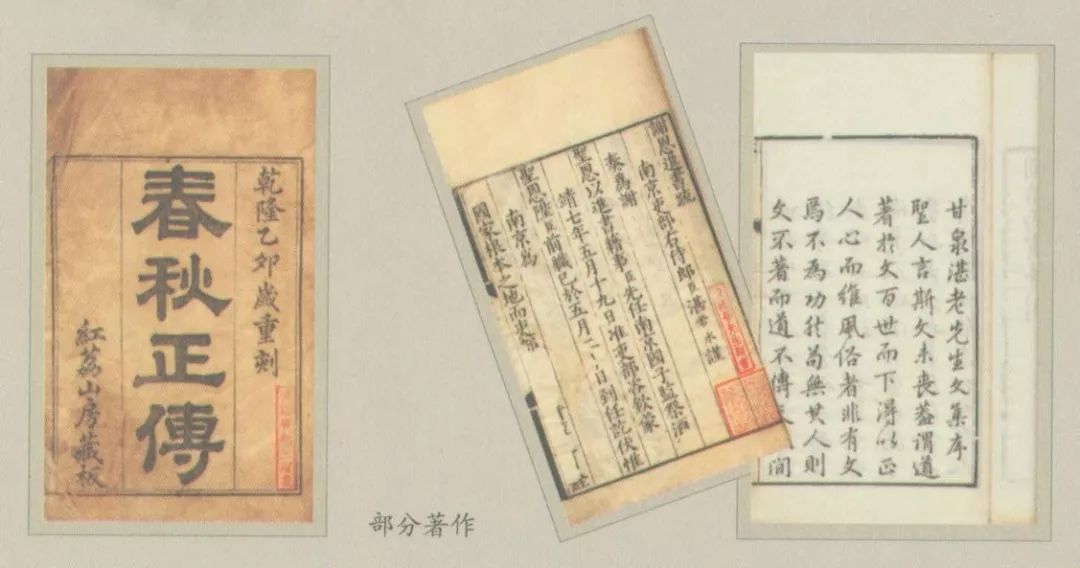 乾隆乙卯歲重刻
春秋正傳
紅荔山房藏板
謝恩進書疏
南京吏部右侍郎臣湛若水謹
奏為謝
聖恩以進書籍事臣先任南京國子監祭酒
靖七年五月十九日准吏部咨欽蒙
聖恩陞臣前職已於五月二日到任訖伏惟
南京為
國家根本之地而吏
甘泉湛老先生文集序
聖人言斯文未喪蓋謂道
著於文百世而下得以正
人心而維風俗者非有文
焉不為功然苟無其人則
文不著而道不傳間
部分著作